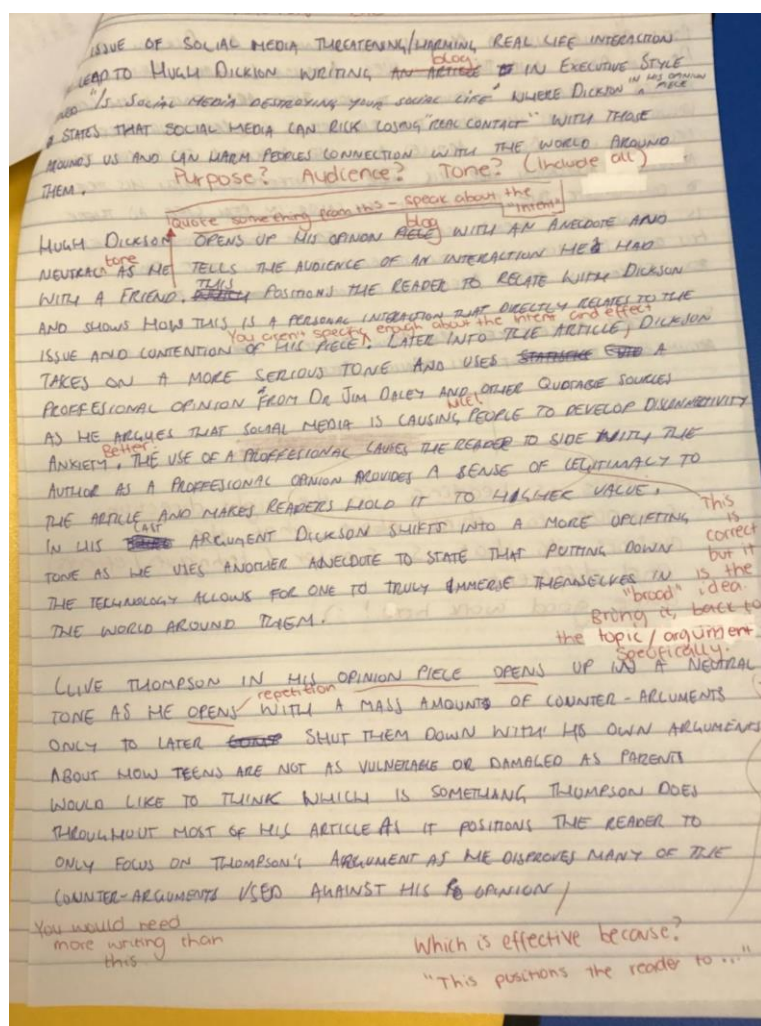 ISSUE OF SOCIAL MEDIA THREATENING/HARMING REAL LIFE INTERACTION
blog
LEAD TO HUGH DICKSON WRITING AN ARTICLE IN EXECUTIVE STYLE
"IS SOCIAL MEDIA DESTROYING YOUR SOCIAL LIFE" WHERE DICKSON IN HIS OPINION PIECE
STATES THAT SOCIAL MEDIA CAN RISK LOSING "REAL CONTACT" WITH THOSE
AROUND US AND CAN HARM PEOPLES CONNECTION WITH THE WORLD AROUND
THEM.
Purpose? Audience? Tone? (include all)
Quote something from this - speak about the "intent"
blog
HUGH DICKSON OPENS UP HIS OPINON PIECE WITH AN ANECDOTE AND
tone
NEUTRAL AS HE TELLS THE AUDIENCE OF AN INTERACTION HE HAD
THIS
WITH A FRIEND. POSITIONS THE READER TO RELATE WITH DICKSON
AND SHOWS HOW THIS IS A PERSONAL INTERACTION THAT DIRECTLY RELATES TO THE
You aren't specific enough about the intent and effect
ISSUE AND CONTENTION OF HIS PIECE. LATER INTO THE ARTICLE, DICKSON
TAKES ON A MORE SERIOUS TONE AND USES A
PROFFESIONAL OPINION FROM DR JIM DALEY AND OTHER QUOTABLE SOURCES
Nice!
AS HE ARGUES THAT SOCIAL MEDIA IS CAUSING PEOPLE TO DEVELOP
Better.
ANXIETY. THE USE OF A PROFFESIONAL CAUSES THE READER TO SIDE WITH THE
AUTHOR AS A PROFFESIONAL OPINION PROVIDES A SENSE OF LEGITIMACY TO
THE ARTICLE AND MAKES READERS HOLD IT TO HIGHER VALUE.
LAST
IN HIS ARGUMENT DICKSON SHIFTS INTO A MORE UPLIFTING
TONE AS HE USES ANOTHER ANECDOTE TO STATE THAT PUTTING DOWN
THE TECHNOLOGY ALLOWS FOR ONE TO TRULY IMMERSE THEMSELVES IN
THE WORLD AROUND THEM.
This
is
correct
but it
is the
"broad" idea.
Bring it back to
the topic/argument
specifically.
CLIVE THOMPSON IN HIS OPINION PIECE OPENS UP IN A NEUTRAL
repetition
TONE AS HE OPENS WITH A MASS AMOUNTS OF COUNTER-ARGUMENTS
ONLY TO LATER SHUT THEM DOWN WITH HIS OWN ARGUMENTS
ABOUT HOW TEENS ARE NOT AS VULNERABLE OR DAMAGED AS PARENTS
WOULD LIKE TO THINK WHICH IS SOMETHING THOMPSON DOES
THROUGHOUT MOST OF HIS ARTICLE AS IT POSITIONS THE READER TO
ONLY FOCUS ON THOMPSON'S ARGUMENT AS HE DISPROVES MANY OF THE
COUNTER-ARGUMENTS USED AGAINST HIS OPINION
You would need
more writing than
this
Which is effective because?
"This positions the reader to..."